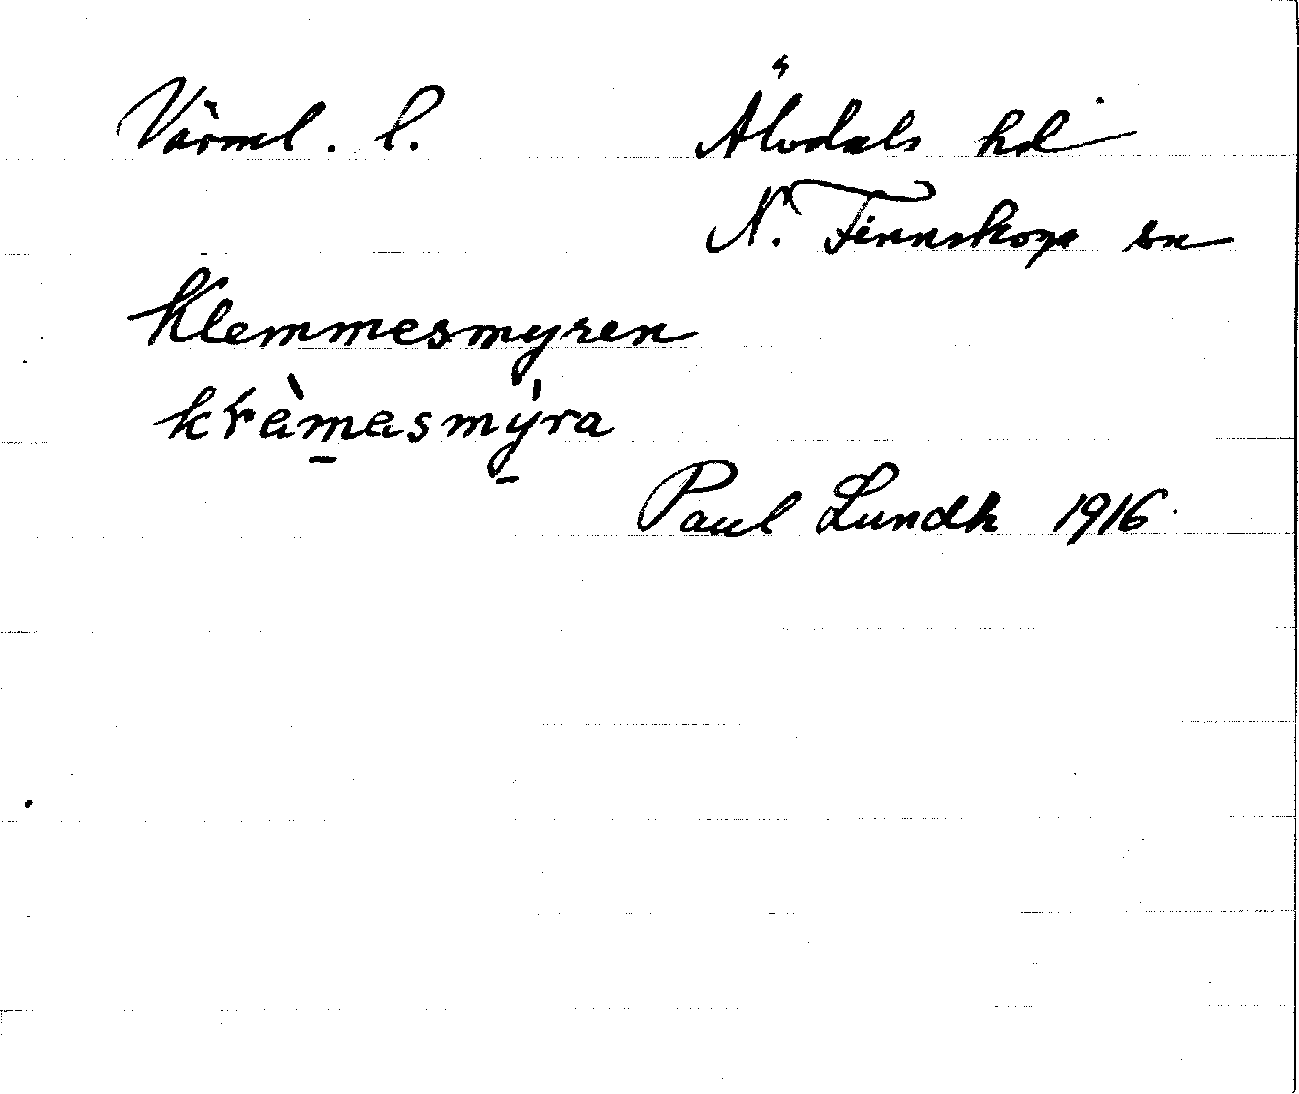 Värml. l. Älvdals hd
N. Finnskoga sn
Klemmesmyren
krèmasmýra
Paul Lundh 1916